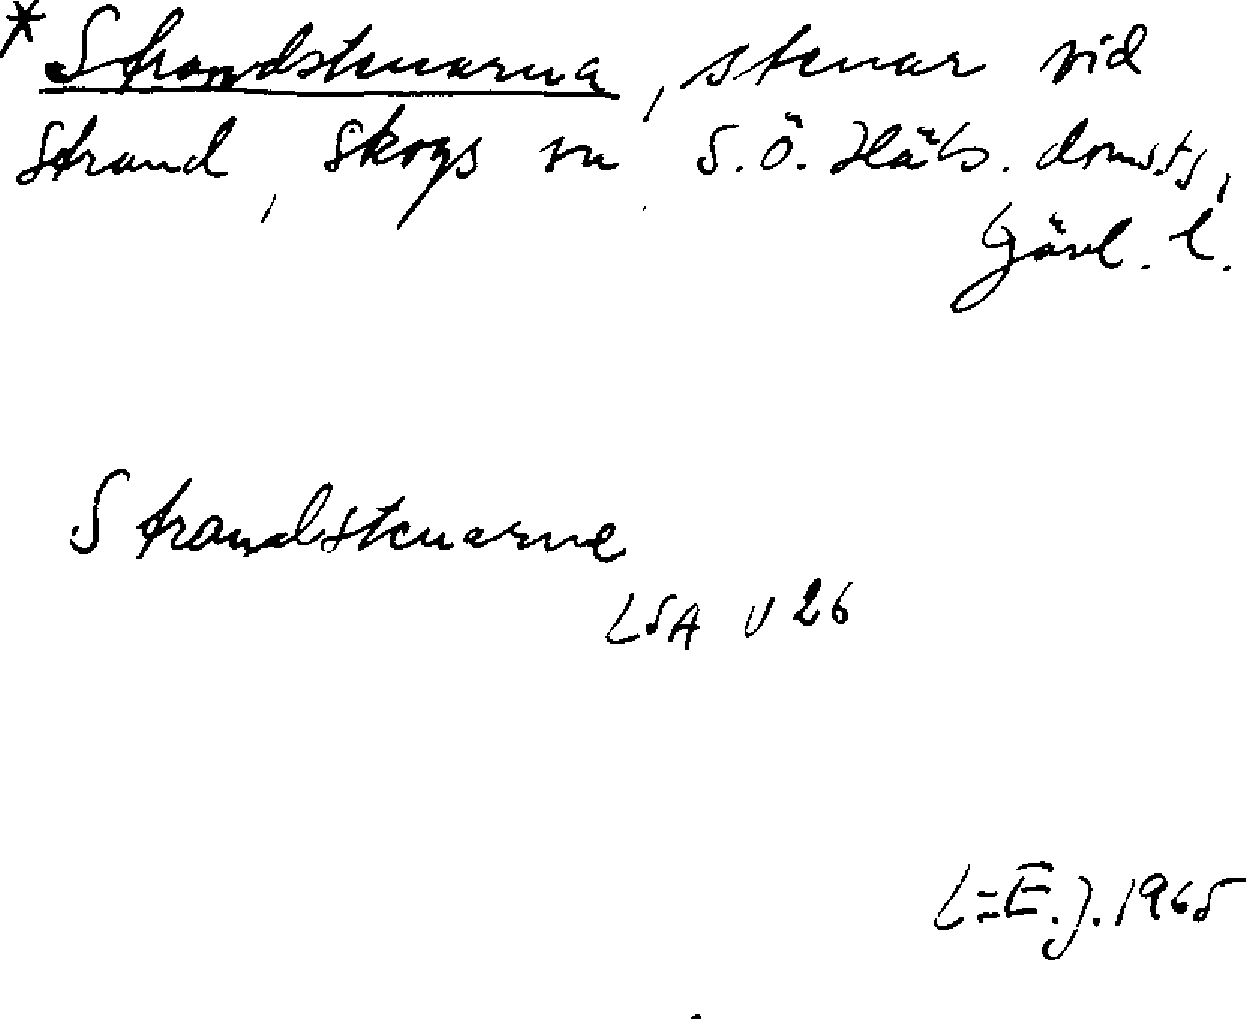 * Strandstenarna, stenar vid
strand, Skogs sn S.Ö. Häls. doms.ts,
Gävl. l.
Strandstenarne
LSA V 26
L=E.J. 1965